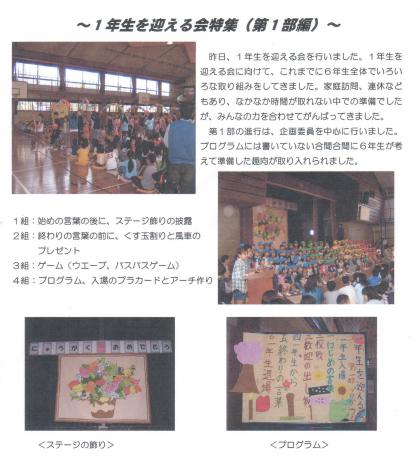 ～１年生を迎える会特集（第１部編）～
昨日、１年生を迎える会を行いました。１年生を
迎える会に向けて、これまでに６年生全体でいろい
ろな取り組みをしてきました。家庭訪問、連休など
もあり、なかなか時間が取れない中での準備でした
が、みんなの力を合わせてがんばってきました。
第１部の進行は、企画委員を中心に行いました。
プログラムには書いていない合間合間に６年生が考
えて準備した趣向が取り入れられました。
１組：始めの言葉の後に、ステージ飾りの披露
２組：終わりの言葉の前に、くす玉割りと風車の
プレゼント
３組：ゲーム（ウエーブ、パスパスゲーム）
４組：プログラム、入場のプラカードとアーチ作り
にゅうがくおめでとう
一年生を迎える会
一年生入場
はじめの言葉
校歌
歓迎の出し物
一年生から
終わりの言葉
一年生退場
＜ステージの飾り＞
＜プログラム＞